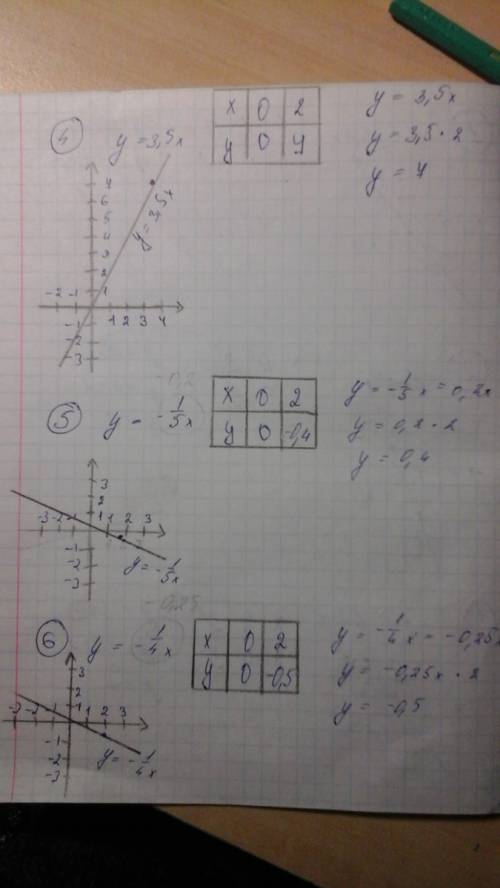 ④ y = 3,5x
x 0 2
y 0 7
y = 3,5x
y = 3,5 · 2
y = 7
7
6
5
4
3
2
1
y = 3,5x
-2 -1 1 2 3 4
-1
-2
-3
-0,2
⑤ y = -1/5x
x 0 2
y 0 -0,4
y = -1/5x = 0,2x
y = 0,2 · 2
y = 0,4
3
2
1
-3 -2 -1 1 2 3
-1
-2
-3
y = -1/5x
-0,25
⑥ y = -1/4x
x 0 2
y 0 -0,5
y = -1/4x = -0,25x
y = -0,25x · 2
y = -0,5
3
2
1
-3 -2 -1 1 2 3
-1
-2
-3
y = -1/4x